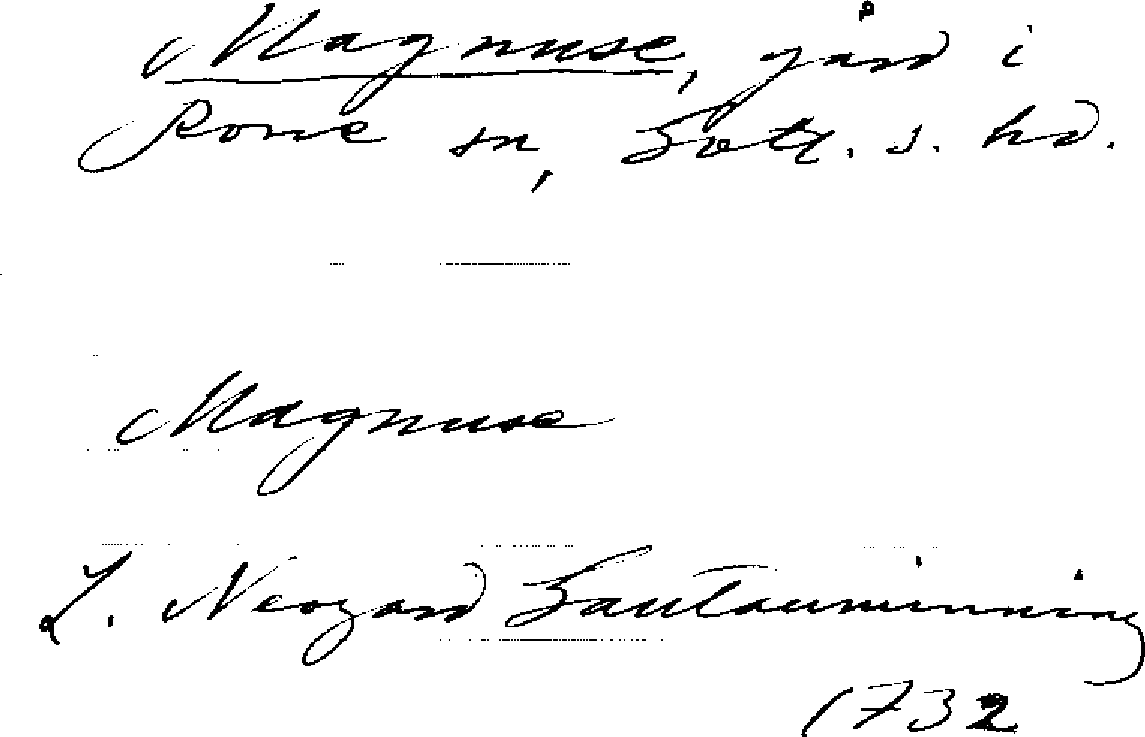 Magnuse, gård i
Rone sn, Gotl. s. hd.
Magnuse
L. Neogard Gautauminning
1732